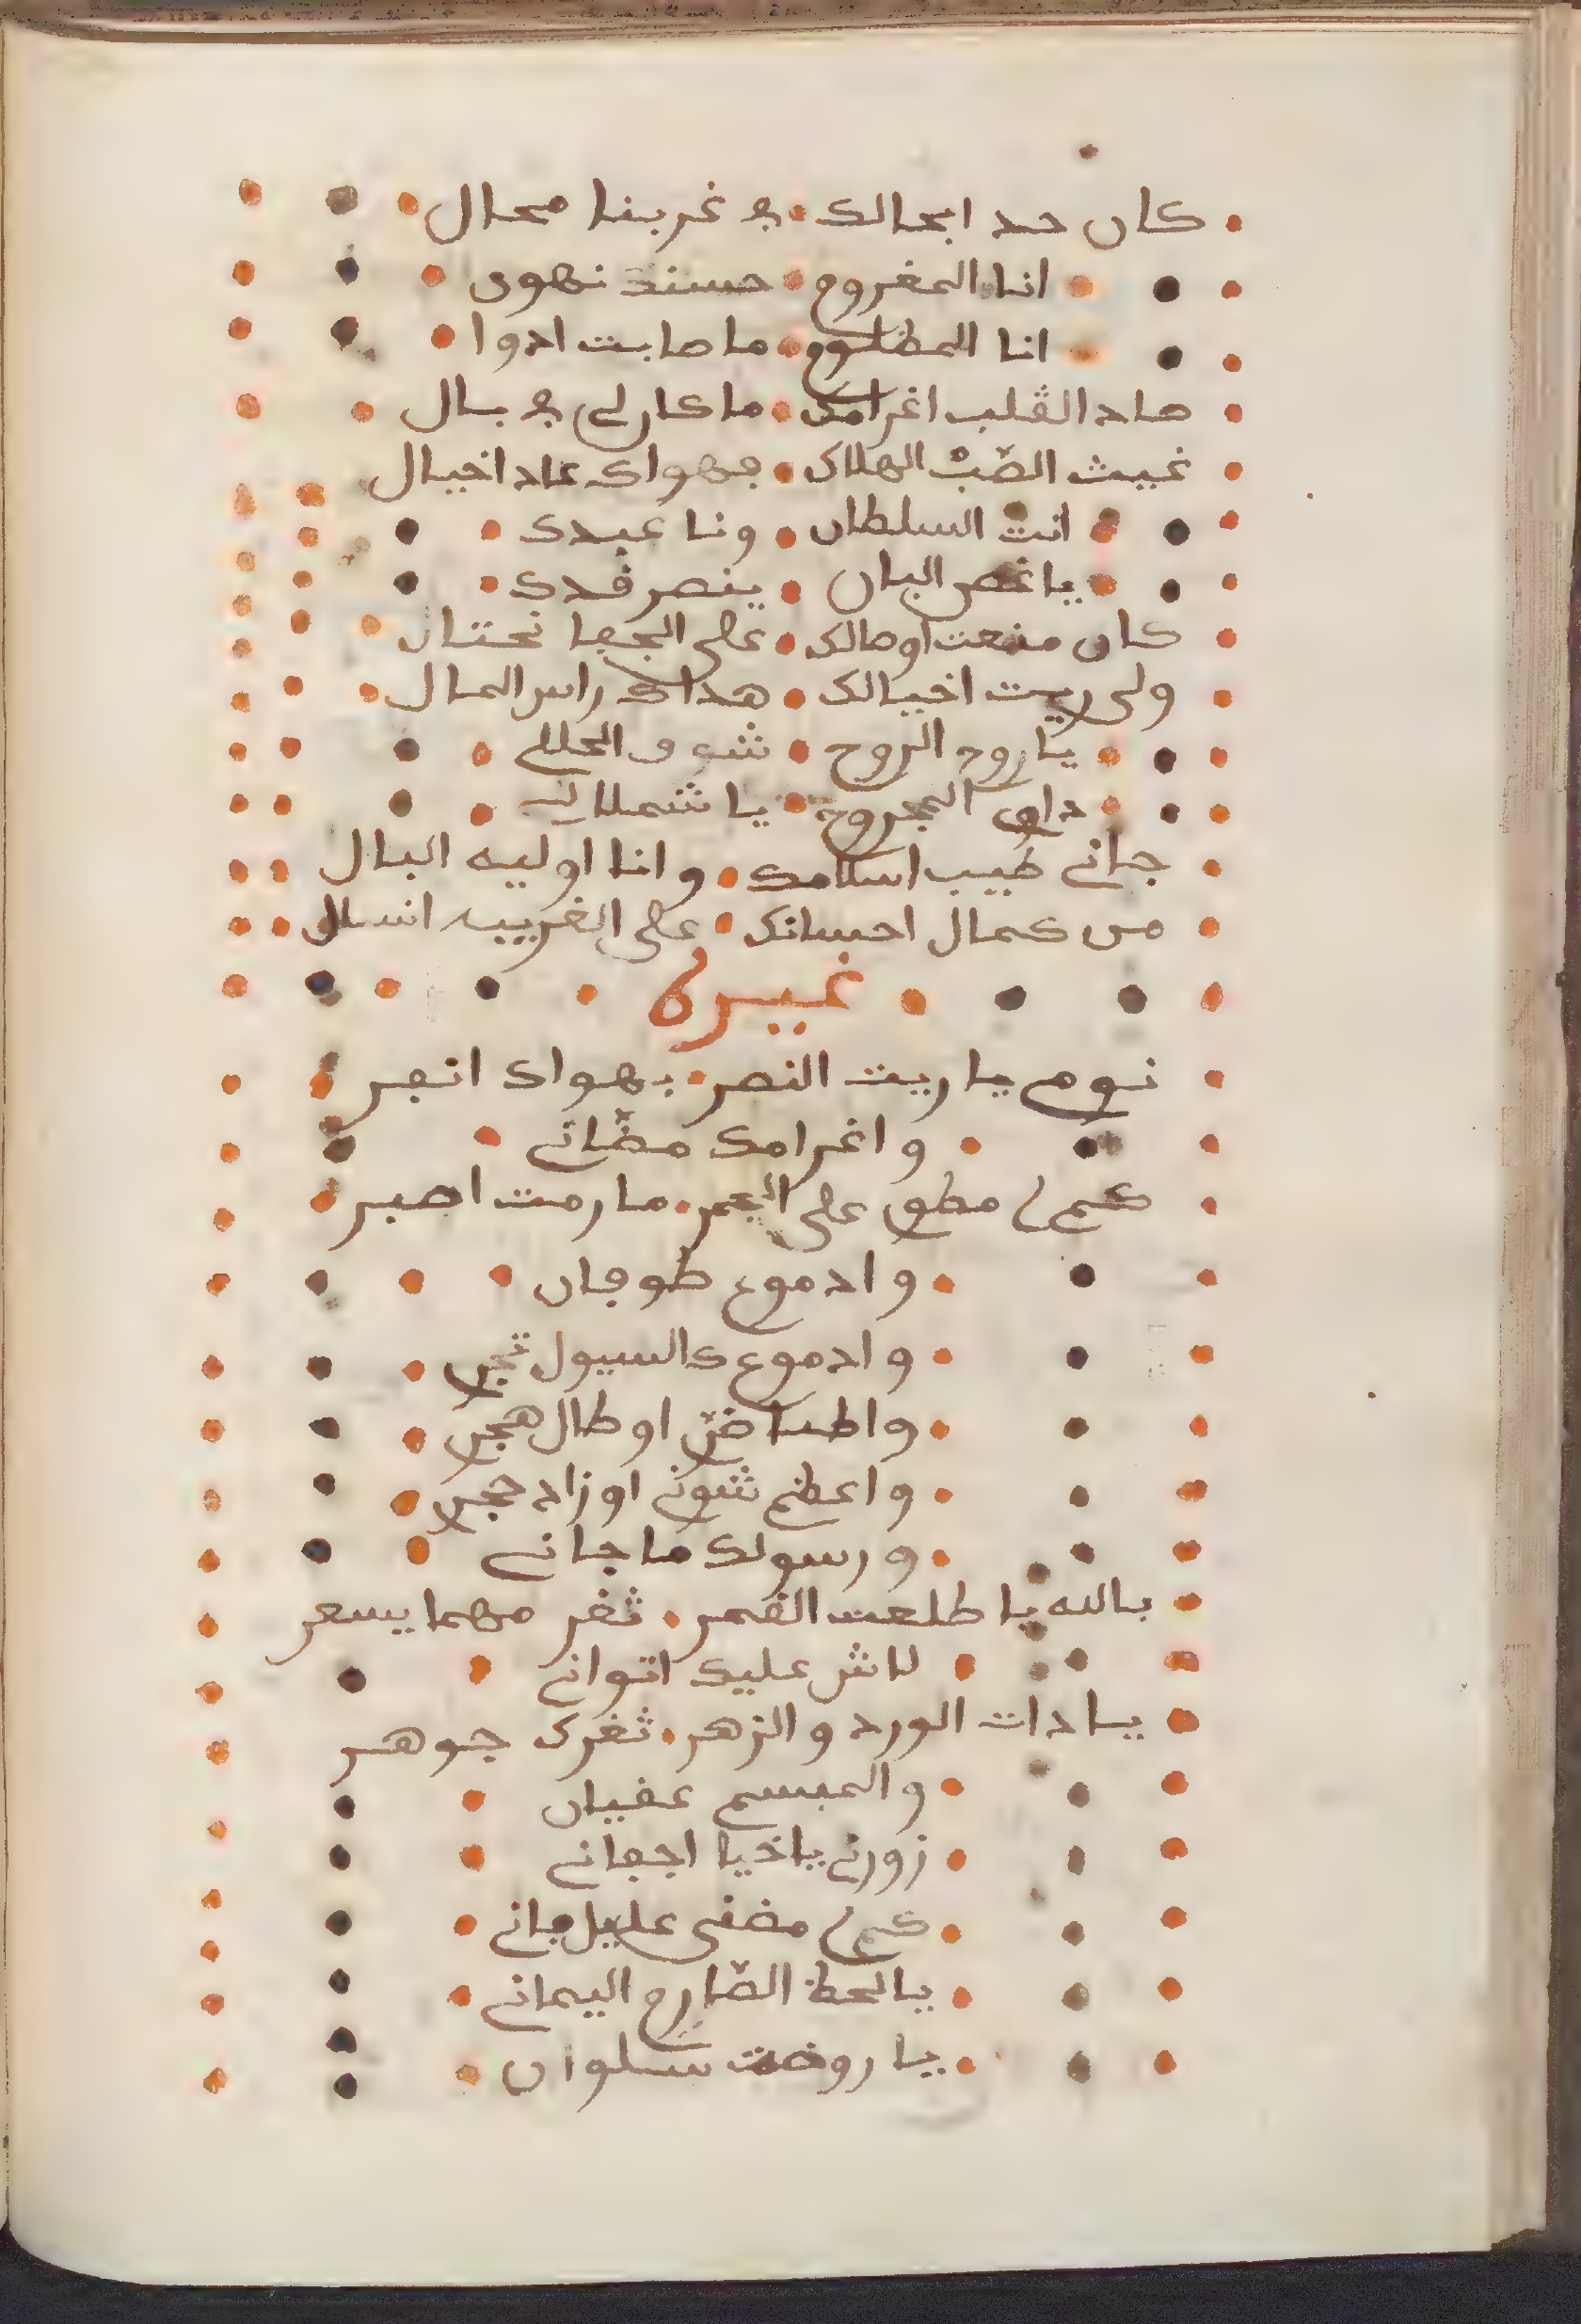 كان حد ابحالك في غربنا محال
انا المغروم حسنك نهوى
انا المظلوم ما صابت ادوا
صاد القلب اغرامك ما كان لي في بال
غيث الصّبّ الهلاك بهواك عاد اخيال
انت السلطان ونا عبدك
يا غصن البان ينصر قدك
كان منعت اوصالك على الجفا نحتال
ولى ريت اخيالك هداك راس المال
يا روح الروح شوف الحللي
داوي المجروح يا شملالي
جاني طيب اسلامك وانا اوليه البال
من كمال احسانك على الغريب انسال
غيره
نوم يا ريت النصر بهواك انفجر
واغرامك مضّاني
كم لي مطوق على الجمر ما رمت اصبر
وادموع طوفان
وادموع كالسيول تجري
واطنا ضرّي اوطال هجري
واعظم شوقي اوزاد حجري
ورسولك ما جاني
بالله يا طلعت القمر ثغر مهما يسعر
لاش عليك اتواني
يا دات الورد والزهر ثغرك جوهر
والمبسم عقيان
زورني يا ضيا اجفاني
كم لي مضنى عليل فاني
يا لحظ الصّارم اليماني
يا روضت سلوان